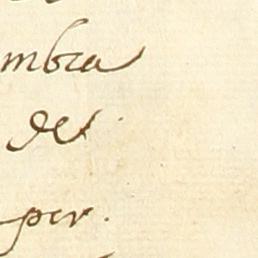 mbra
del
per.